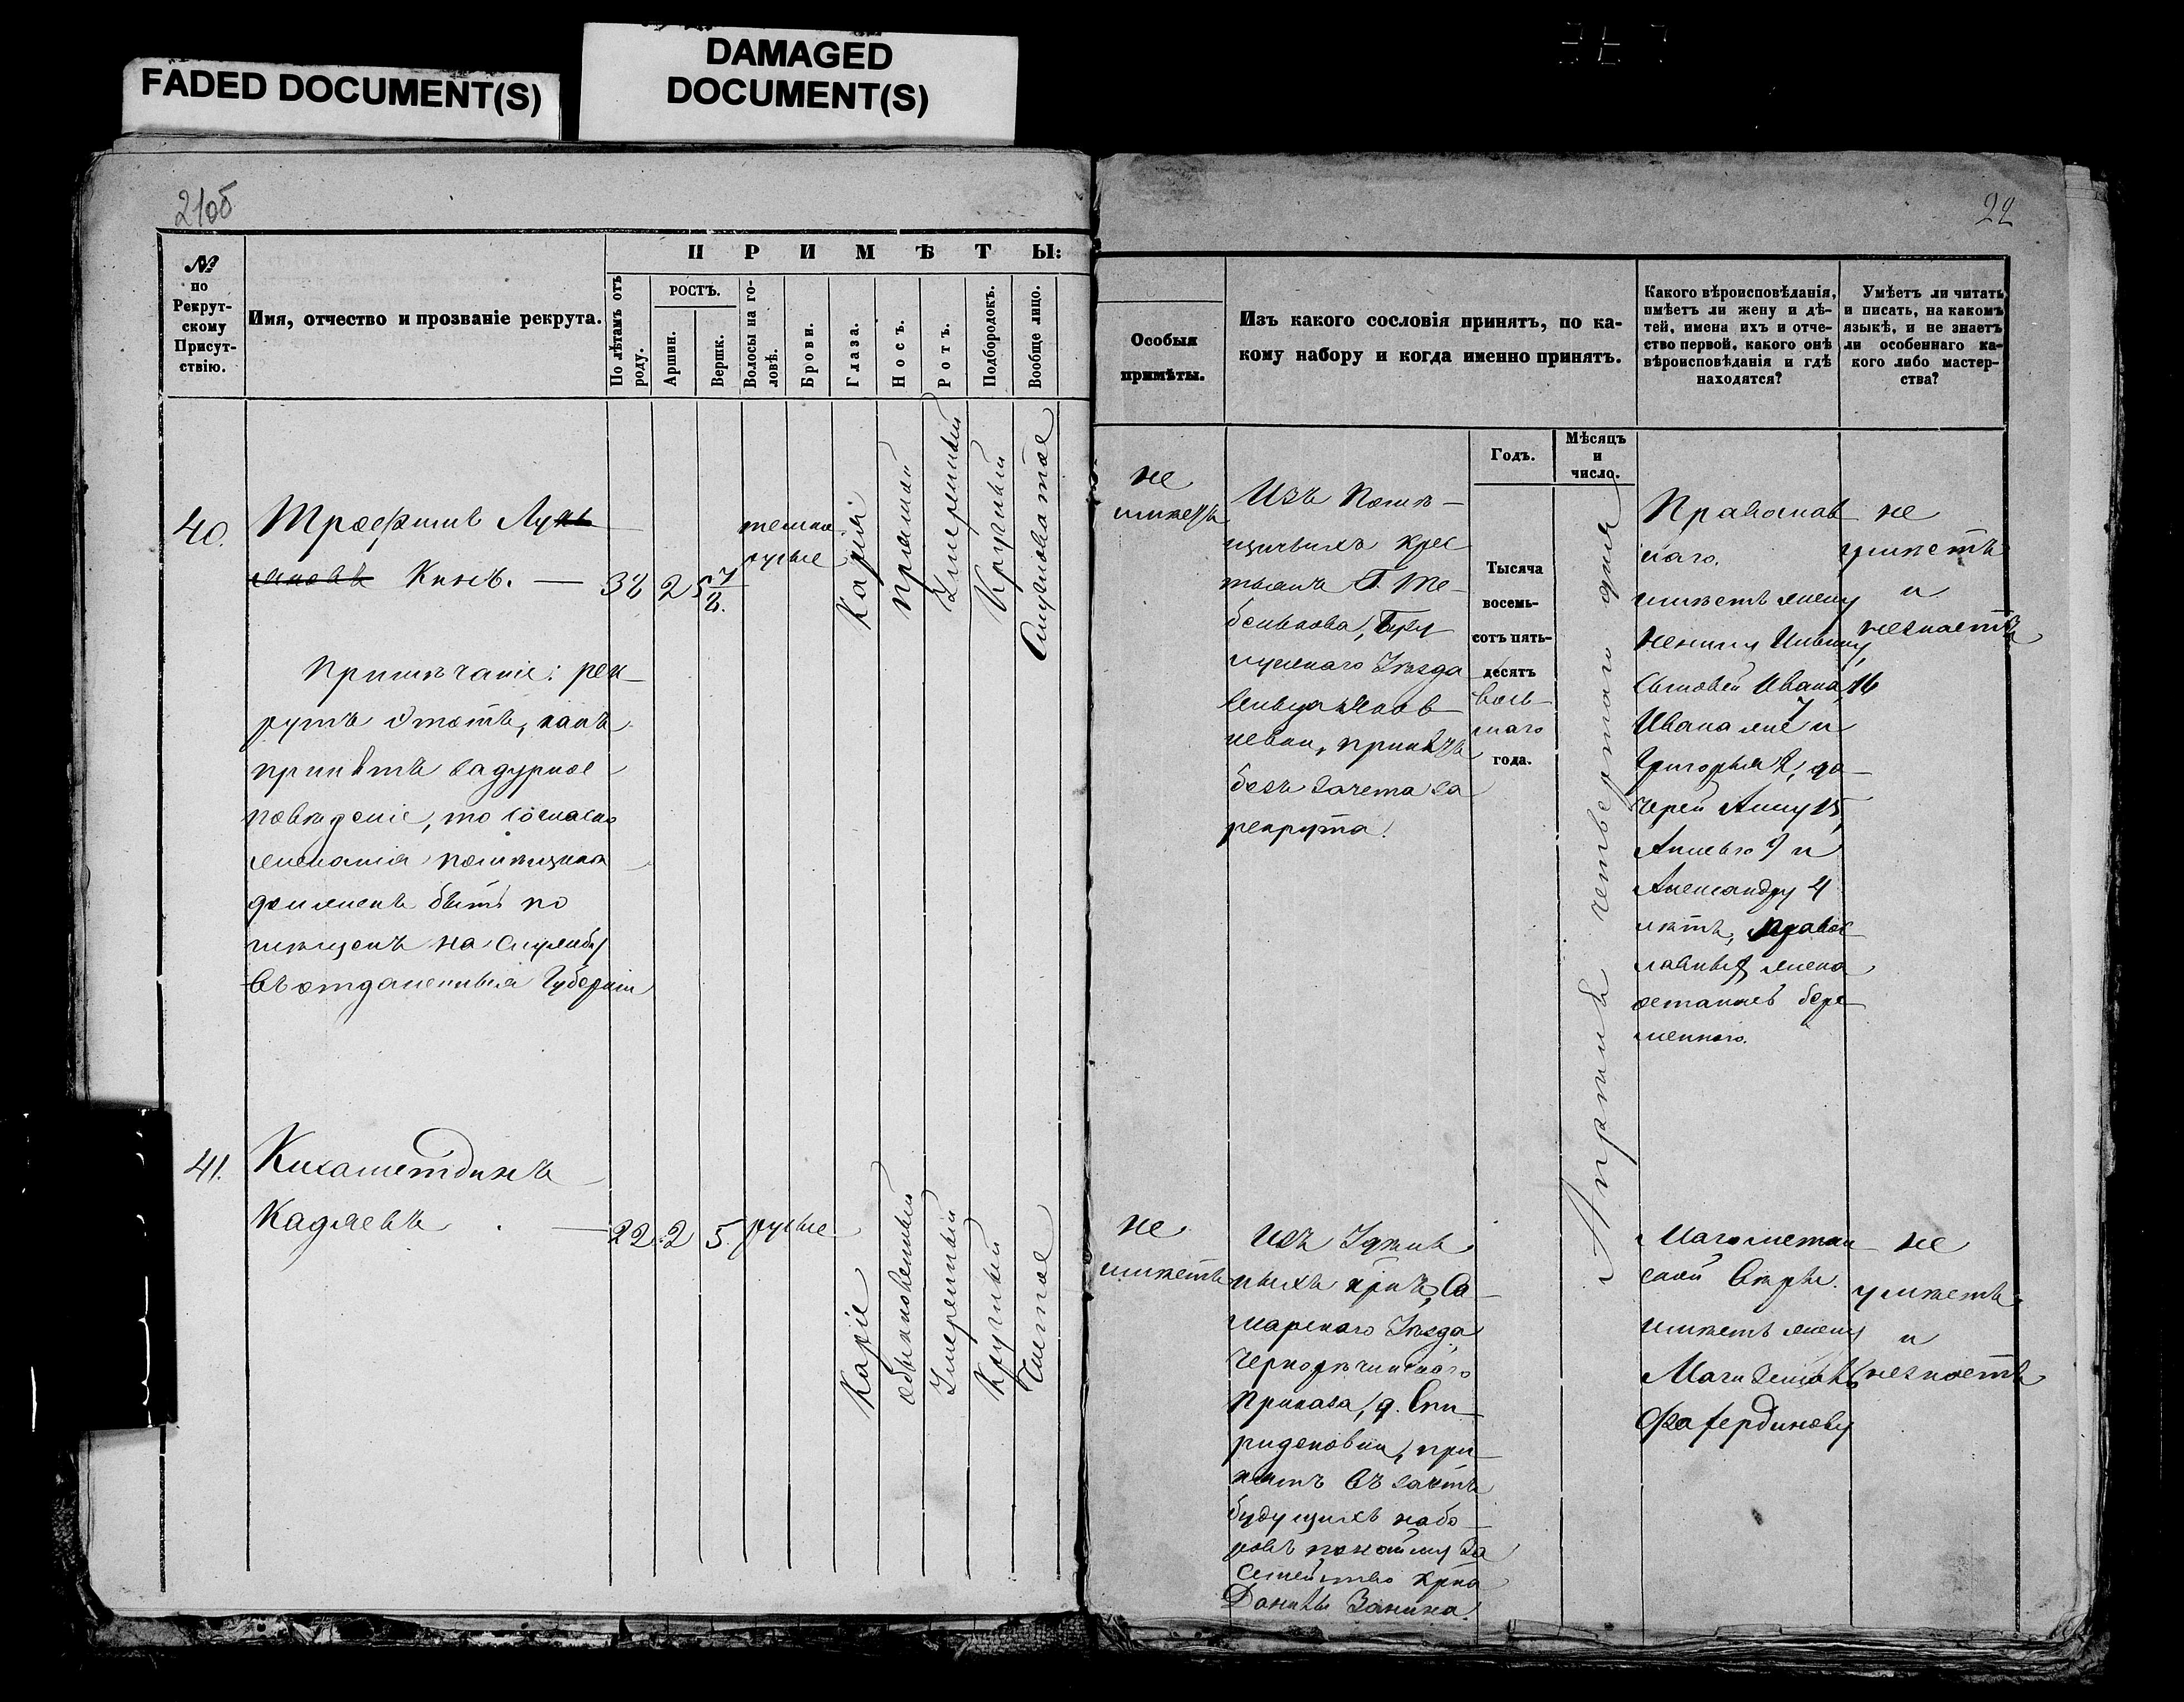 FADED DOCUMENT(S)
DAMAGED
DOCUMENT(S)
21об
№
по
Рекрут-
скому
Присут-
ствію.
Имя, отчество и прозваніе рекрута.
ПРИМѢТЫ:
По лѣтамъ отъ
роду.
РОСТЪ.
Аршин.
Вершк.
Волосы на го-
ловѣ.
Брови.
Глаза.
Носъ.
Ротъ.
Подбородокъ.
Вообще лицо.
40.
Трофимъ Лукь
яновъ Кинъ.
38
2
5 7/8.
темно
русые
Каріи
прямой
Умеренный
Круглый
Примѣчаніе: рек-
рутъ этотъ, какъ
принятъ за дурное
поведеніе, то согласно
желанія помѣщика
долженъ быть по
мѣщенъ на службу
въ отдаленныя Губерніи
41.
Кадяевъ
22
2
5
русые
Каріе
обыкновенный
Умеренный
Круглый
Чистое
22
Особыя
примѣты.
Изъ какого сословія принятъ, по ка-
кому набору и когда именно принятъ.
Какого вѣроисповѣданія,
имѣетъ ли жену и дѣ-
тей, имена ихъ и отче-
ство первой, какого онѣ
вѣроисповѣданія и гдѣ
находятся?
Умѣетъ ли читать
и писать, на какомъ
языкѣ, и не знаетъ
ли особеннаго ка-
кого либо мастер-
ства?
Годъ.
Мѣсяцъ
и
число.
не
имѣетъ
Изъ Помѣ-
щичьихъ крес
тьянъ Г. Те-
Уѣзда
принятъ
безъ зачета за
рекрута.
Тысяча
восемь-
сотъ пять-
десятъ
вось-
маго
года.
Апрѣля четвертаго дня
Православ
наго.
имѣетъ жену
Ильину,
Сыновей Ивана 16
Ивана же 7 и
Григорья 2, до-
черей Анну 15,
9 и
Александру 4
лѣтъ, правос-
лавныя, жена
осталась бере-
менною.
не
умѣетъ
и
незнаетъ
не
имѣетъ
Изъ Удѣль
ныхъ крнъ, Са-
марскаго Уѣзда,
Чернорѣчинскаго
Приказа, д. Спи-
ридоновки, при-
нятъ въ зачетъ
будущихъ набо-
ровъ по найму за
Семейство крна
Данилы Занина.
Магометан-
ской Вѣры.
имѣетъ жену
не
умѣетъ
и
незнаетъ